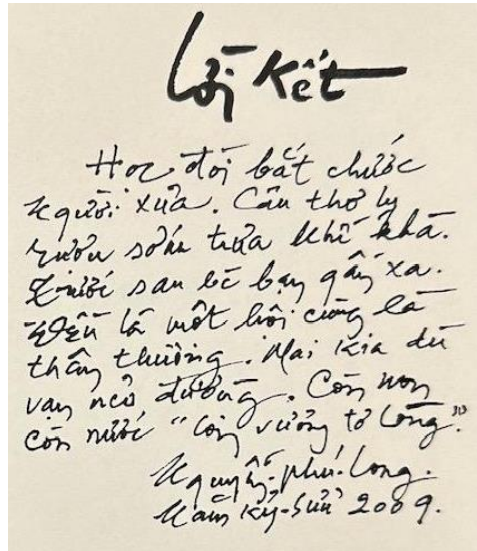 Lời Kết
Học đòi bắt chước
người xưa. Câu thơ ly
rượu sớm trưa khề khà.
Trước sau bè bạn gần xa.
Đều là một hội cùng là
thân thương. Mai kia dù
vạn nẻo đường. Còn non
còn nước "còn vương tơ lòng."
Nguyễn-phú-Long.
Năm Kỷ-Sửu 2009.